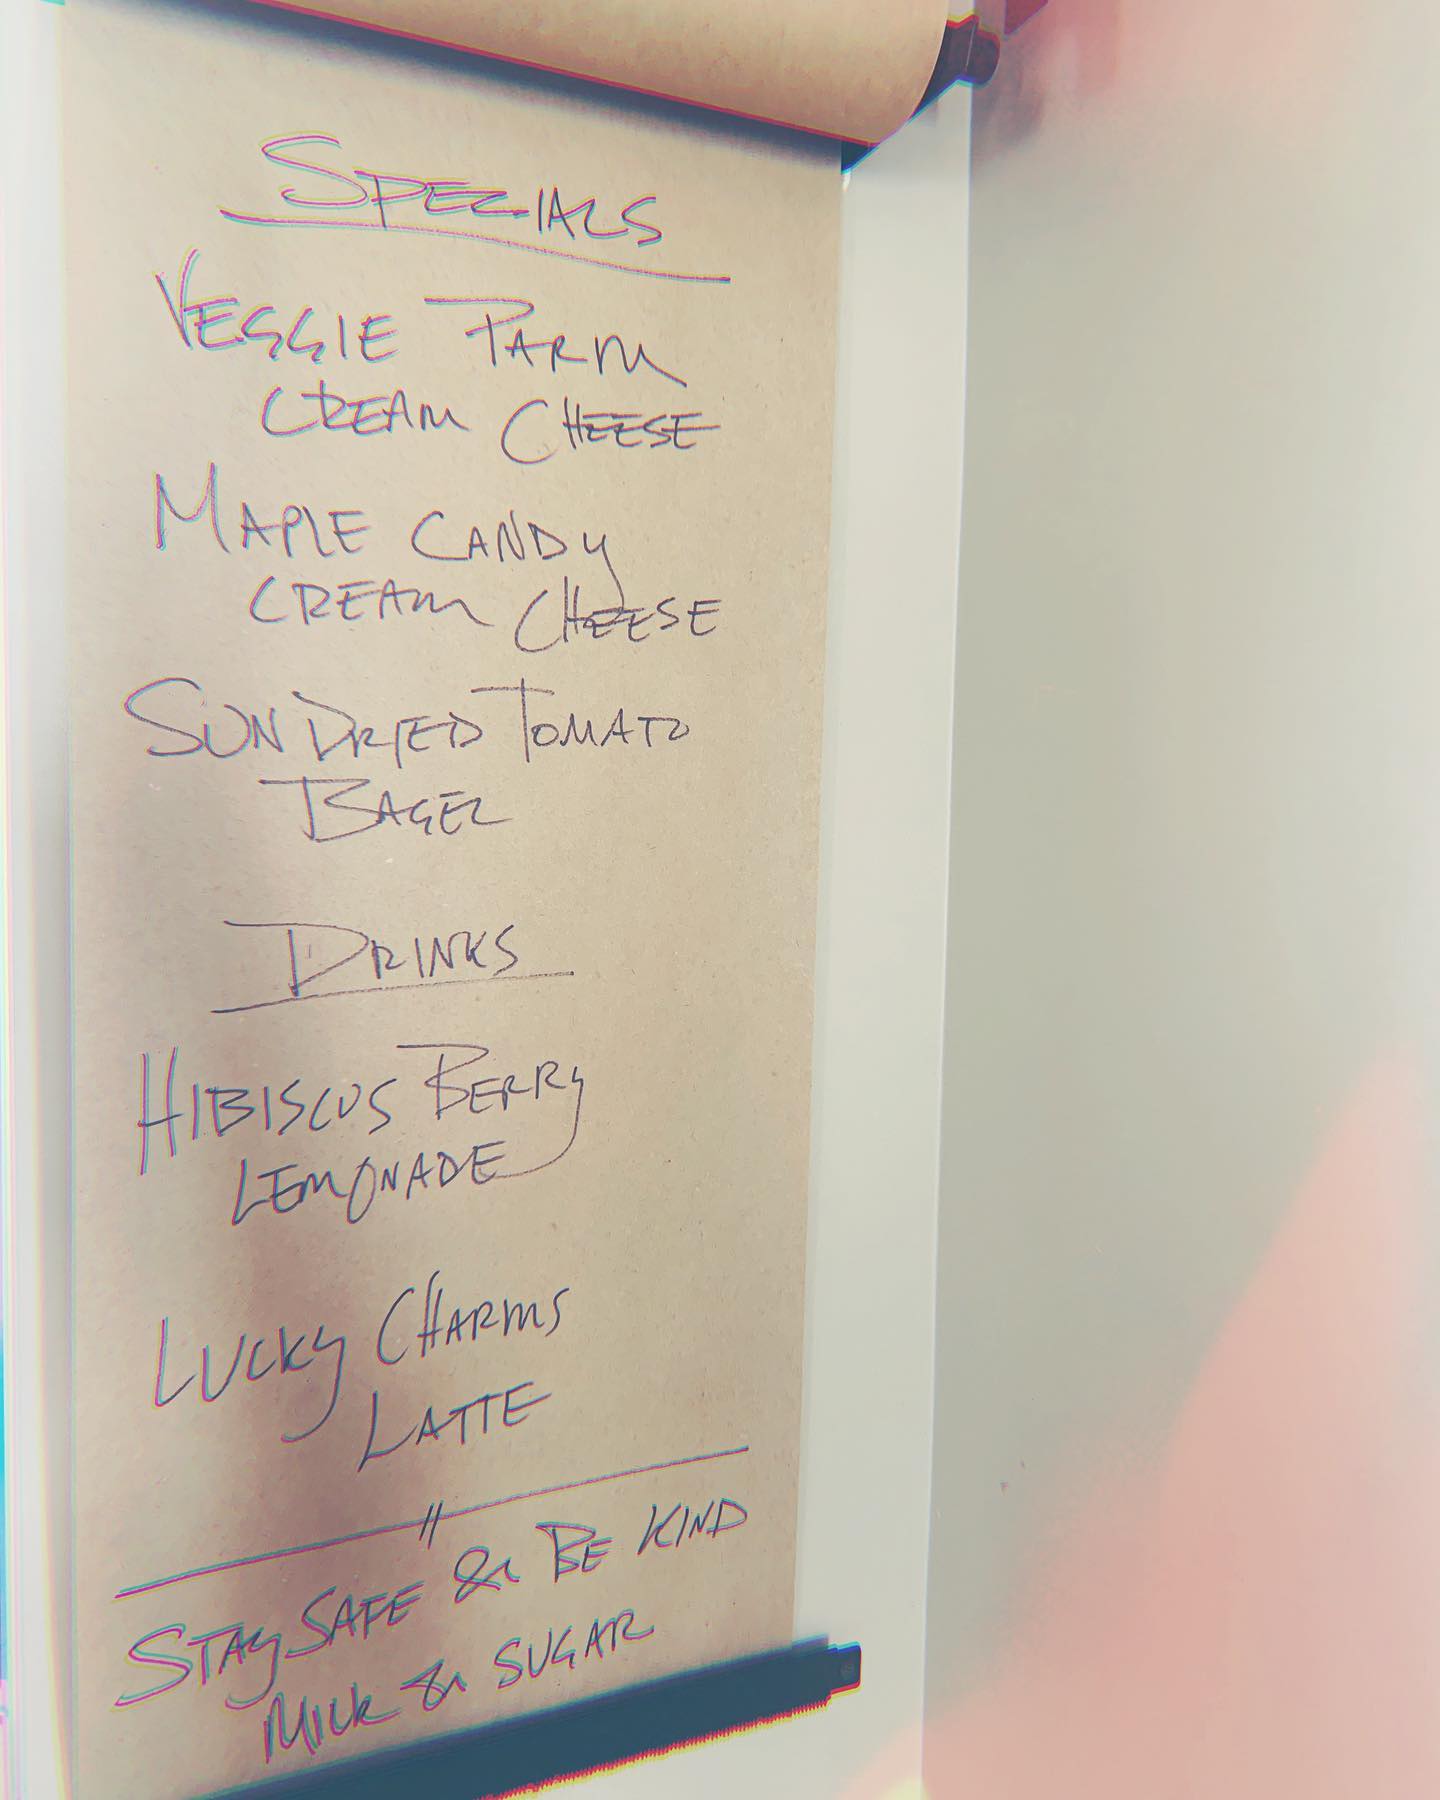 SPECIALS
VEGGIE PARM
CREAM CHEESE
MAPLE CANDY
CREAM CHEESE
SUN DRIED TOMATO
BAGEL
DRINKS
HIBISCUS BERRY
LEMONADE
LUCKY CHARMS
LATTE
STAY SAFE & BE KIND
MILK & SUGAR